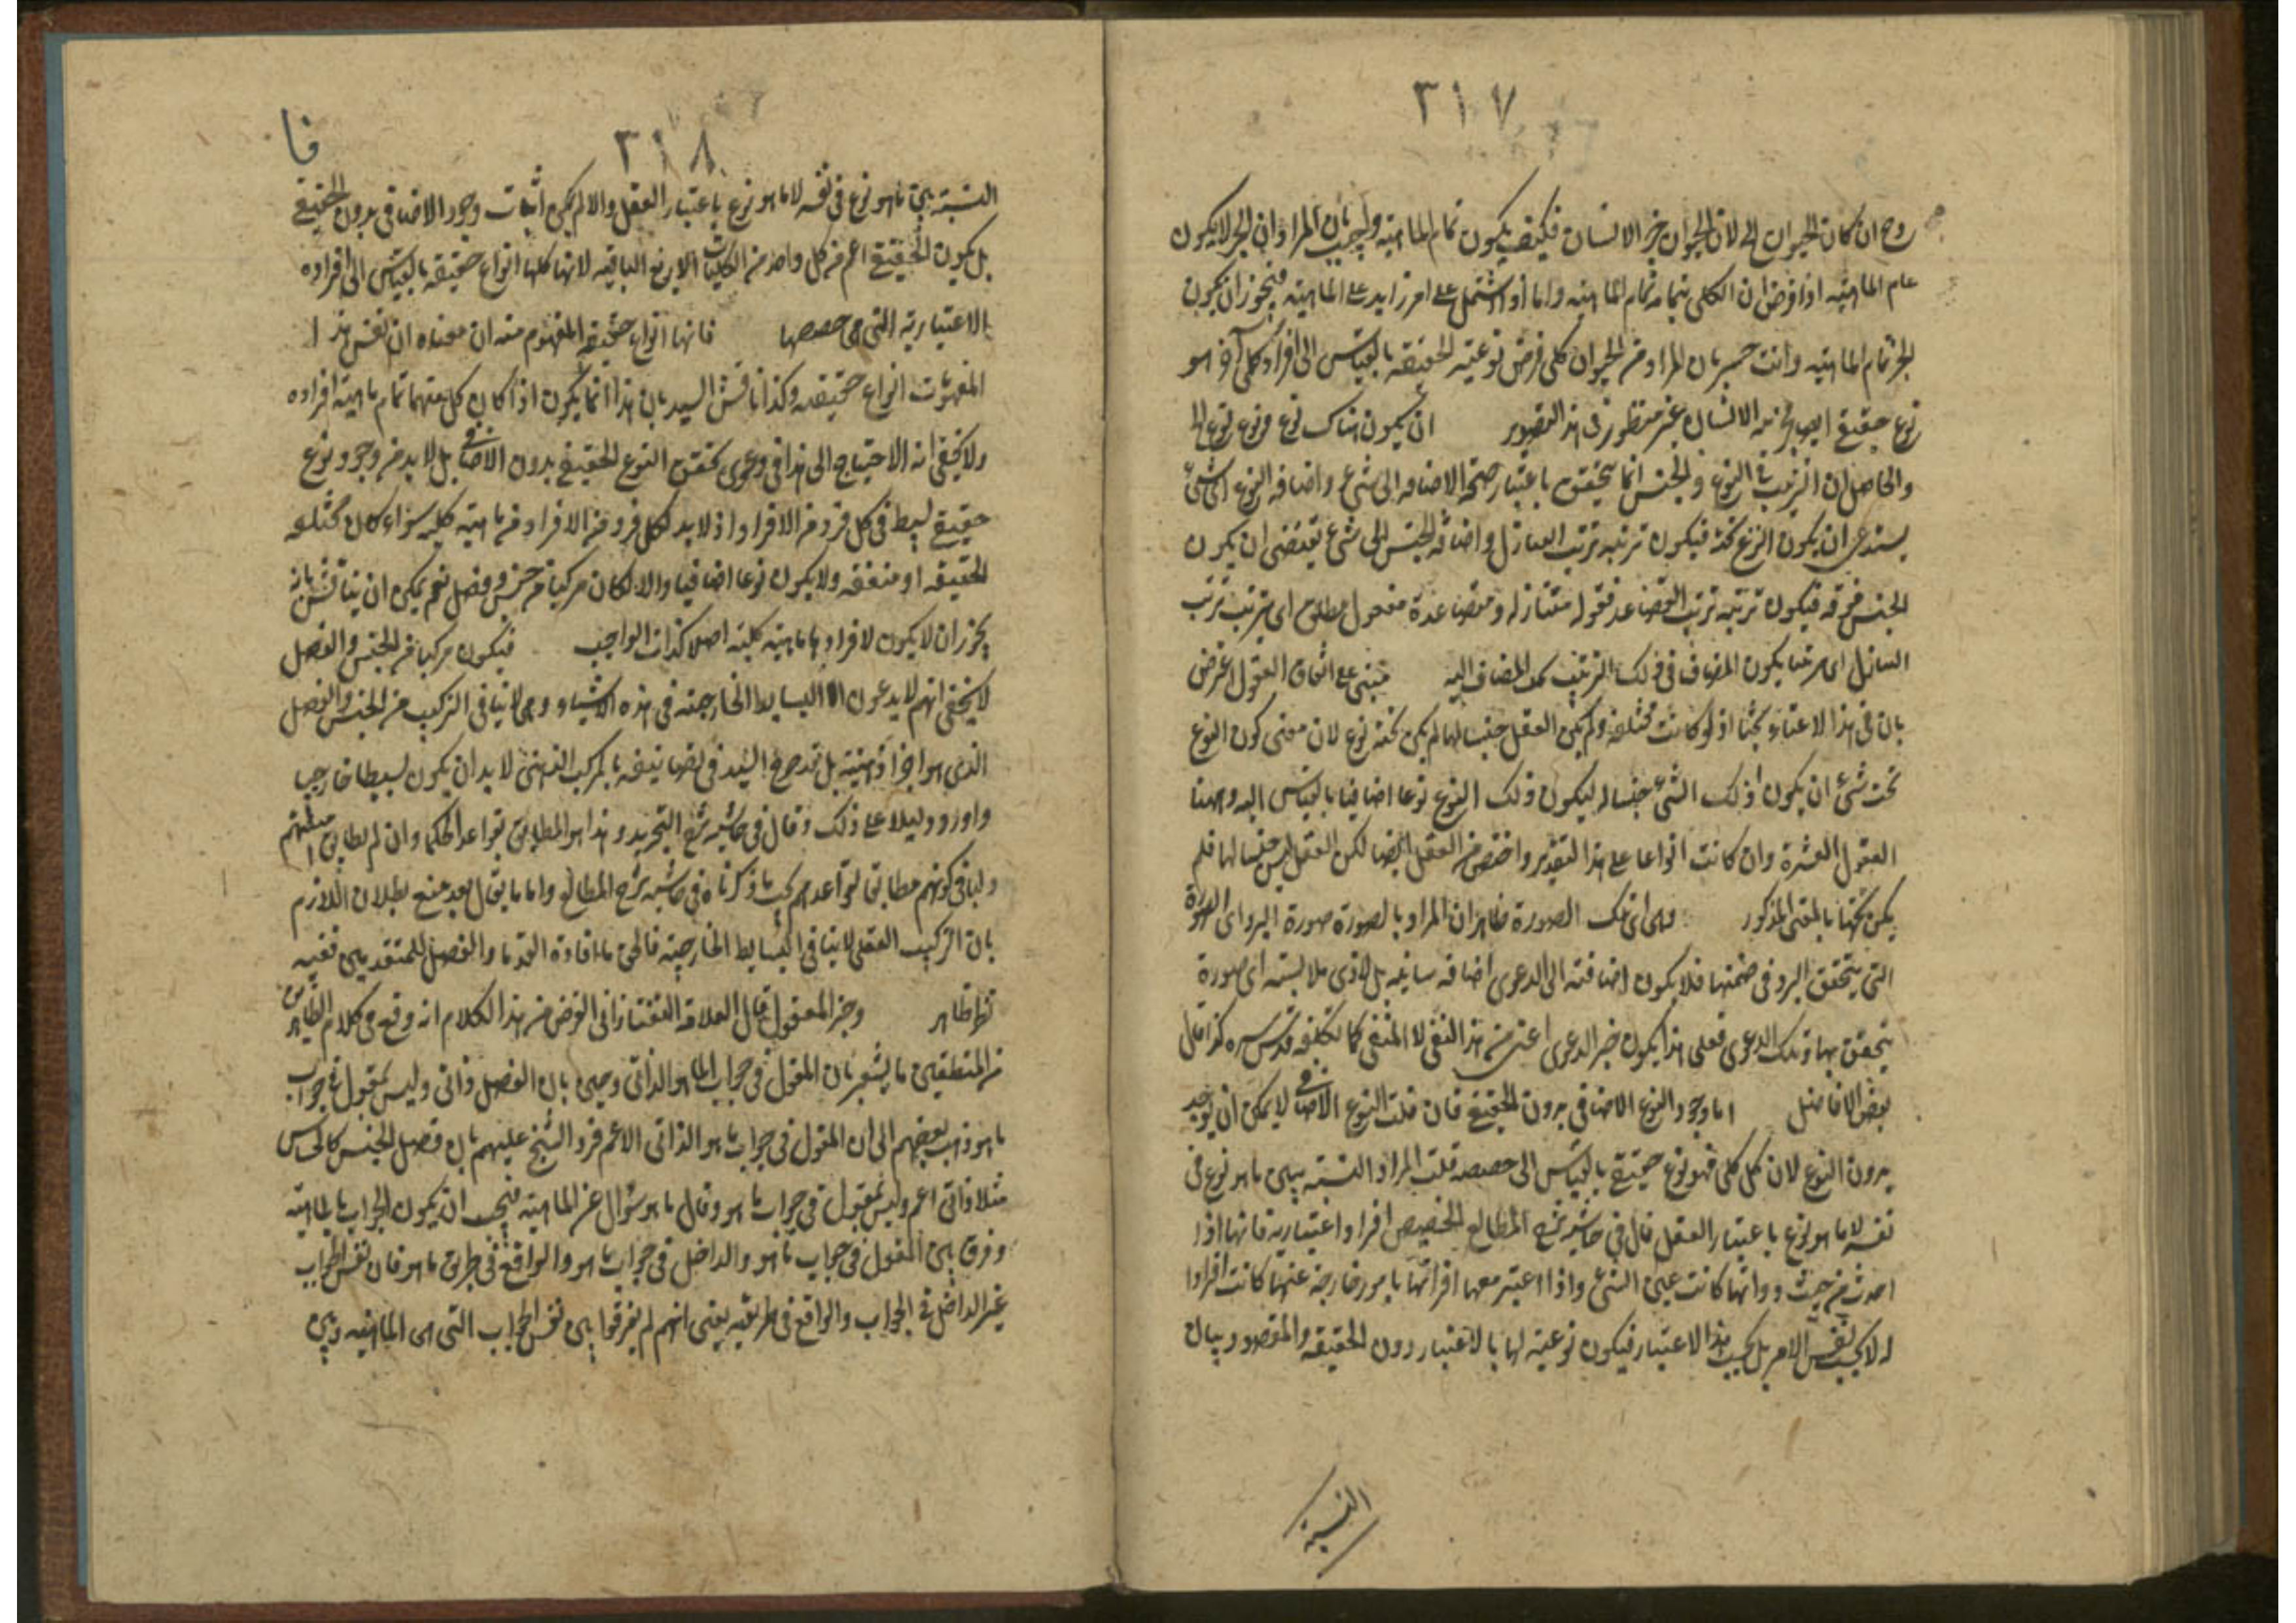 ٣١٧
روح ان كان الحيوان الخ لان الحيوان جزء الانسان فكيف يكون تمام الماهية واجيب بان المراد ان الجزء لا يكون
تمام الماهية اذا فرض ان الكلى بتمامه تمام الماهية واما لو اشتمل على امر زايد على الماهية فيجوز ان يكون
الجزء تمام الماهية وانت خبير بان المراد من الحيوان كلى فرض نوعيته الحقيقة بالقياس الى افراد كلى آخر هو
نوع حقيقى ايضا فجزئية الانسان غير منظور فى هذا التصوير ان يكون هناك نوع فوق نوع الخ
والحاصل ان الترتيب فى النوع والجنس انما يتحقق باعتبار صحة الاضافه الى شئ واضافه النوع الى شئ
يستدعى ان يكون النوع تحته فيكون ترتبه ترتب التنازل واضافه الجنس الى شئ يقتضى ان يكون
الجنس فوقه فيكون ترتبه ترتب التصاعد فقوله متنازله ومتصاعدة مفعول مطلق اى يترتب ترتب
التنازل اى مرتبا يكون المضاف فى ذلك الترتيب تحت المضاف اليه مبنى على اتفاق العقول اعترض
بان فى هذا الاعتبار بحثا اذ لو كانت مختلفة ولم يكن العقل جنسا لها لم يكن تحته نوع لان معنى كون النوع
تحت شئ ان يكون ذلك الشئ جنسا له ليكون ذلك النوع نوعا اضافيا بالقياس اليه وههنا
العقول العشرة وان كانت انواعا على هذا التقدير واخص من العقل ايضا لكن العقل ليس جنسا لها فلم
يكن تحتها بالمعنى المذكور وهى اى تلك الصورة ظاهر ان المراد بالصورة صورة البرد اى الصورة
التى يتحقق البرد فى ضمنها فلا يكون اضافته الى الدعوى اضافه بيانيه بل لادنى ملابسته اى صورة
يتحقق بها وتلك الدعوى فعلى هذا يكون خبر الدعوى اعنى من هذا النفى لا المنفى كما تكلفه قدس سره كذا قال
بعض الافاضل اما وجود النوع الاضافى بدون الحقيقى فان قلت النوع الاضافى لا يمكن ان يوجد
بدون النوع لان كل كلى فهو نوع حقيقى بالقياس الى حصصه قلت المراد النسبة بين ما هو نوع فى
نفسه لا ما هو نوع باعتبار العقل قال فى حاشيه شرح المطالع الحصص افراد اعتباريه فانها اذا
اخذت من حيث ذواتها كانت عين الشئ واذا اعتبر معها اقترانها بامور خارجة عنها كانت افرادا
له لا بحسب نفس الامر بل بحسب هذا الاعتبار فيكون نوعيته لها بالاعتبار دون الحقيقه والمقصود بيان
النسبة
٣١٨
فا
النسبة بين ما هو نوع فى نفسه لا ما هو نوع باعتبار العقل والا لم يكن اثبات وجود الاضافى بدون الحقيقى
بل يكون الحقيقى اعم من كل واحد من الكليات الاربع الباقيه لانها كلها انواع حقيقه بالقياس الى افراده
الاعتباريه التى هى حصصها فانها انواع حقيقه المفهوم منه ان معناه ان نفس هذا
المفهومات انواع حقيقه وكذا ناقش السيد بان هذا انما يكون اذا كان كل منهما تمام ماهية افراده
ولا يخفى انه لا احتياج الى هذا فى دعوى تحقق النوع الحقيقى بدون الاضافى بل لا بد من وجود نوع
حقيقى بسيط فى كل فرد من الافراد اذ لا بد لكل فرد من الافراد من ماهيته كليه سواء كان مختلفه
الحقيقه او متفقه ولا يكون نوعا اضافيا والا لكان مركبا من جنس وفصل نعم يمكن ان يناقش بانه
يجوز ان لا يكون لافرادها ماهيته كليته اصلا كذات الواجب فيكون مركبا من الجنس والفصل
لا يخفى انهم لا يدعون الا البسايط الخارجيه فى هذه الاشياء وهى لا ينافى التركيب من الجنس والفصل
الذى هو اجزاء ذهنية بل قد صرح السيد فى تصانيفه بالمركب الذهنى لا بد ان يكون بسيطا خارجيا
واورد دليلا على ذلك وقال فى حاشيه شرح التجريد وهذا هو المطابق بقواعد الحكماء وان لم يطابق
وليا فى كونهم مطابق لقواعدهم بحث ما ذكرناه فى حاشيه شرح المطالع واما ما يقال بعد منع بطلان اللازم
بان التركيب العقلى لا ينافى البسايط الخارجيه فالحق ما افاده القدما والفصل للمتقدمين ففيه
نظر ظاهر وجزء المعقول قال العلامة التفتازانى الغرض من هذا الكلام انه وقع فى كلام الظاهرين
من المنطقيين ما يشعر بان المقول فى جواب ما هو الذاتى وحين بان الفصل ذاتى وليس بمقول فى جواب
ما هو ذهب بعضهم الى ان المقول فى جواب ما هو الذاتى الاعم فرد الشيخ عليهم بان فصل الجنس كالحساس
مثلا ذاتى اعم وليس بمقول فى جواب ما هو وقال ما هو سؤال عن الماهيته فيجب ان يكون الجواب بالماهيته
وفرق بين المقول فى جواب ما هو والداخل فى جواب ما هو والواقع فى طريق ما هو فان نفس الجواب
غير الداخل فى الجواب والواقع فى طريقه يعنى انهم لم يفرقوا بين نفس الجواب التى هى الماهيه وبين